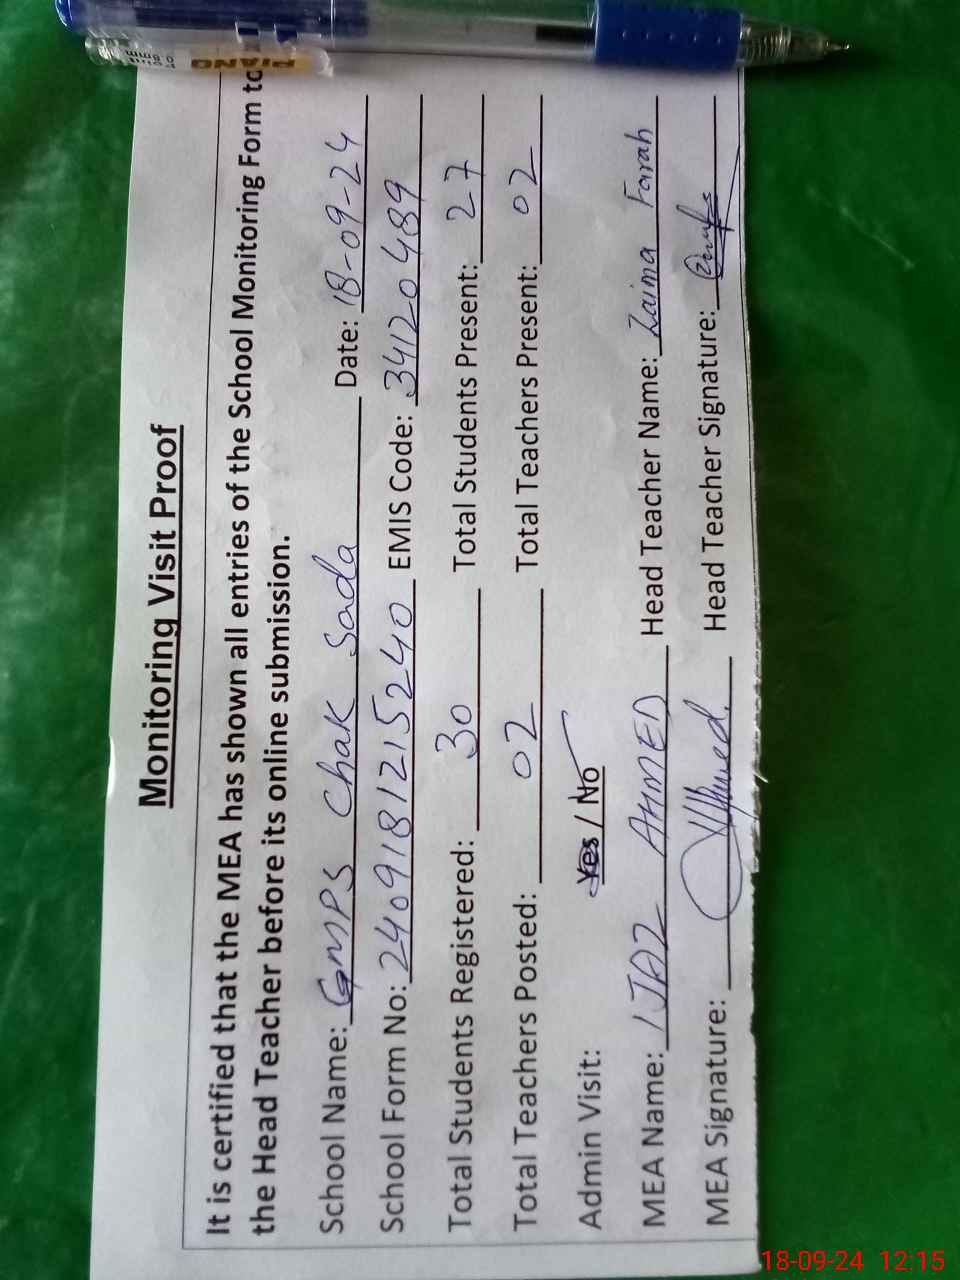 PIANO
Point
0.8mm
Monitoring Visit Proof
It is certified that the MEA has shown all entries of the School Monitoring Form to
the Head Teacher before its online submission.
School Name: GMPS Chak Sada Date: 18-09-24
School Form No: 2409181215240 EMIS Code: 34120489
Total Students Registered: 30 Total Students Present: 27
Total Teachers Posted: 02 Total Teachers Present: 02
Admin Visit: Yes / No
MEA Name: IJAZ AHMED Head Teacher Name: Zaima Farah
MEA Signature: Ahmed. Head Teacher Signature:
18-09-24 12:15